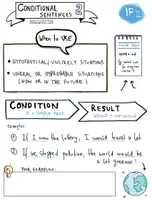 CONDITIONAL
SENTENCES 2
IF
When to USE
* HYPOTHETICAL/UNLIKELY SITUATIONS
* UNREAL OR IMPROBABLE SITUATIONS
(NOW OR IN THE FUTURE)
CONDITION
IF + SIMPLE PAST
RESULT
WOULD + INFINITIVE
examples:
① If I won the lottery, I would travel a lot
② If we stopped pollution, the world would be
a lot greener!
YOUR EXAMPLE: